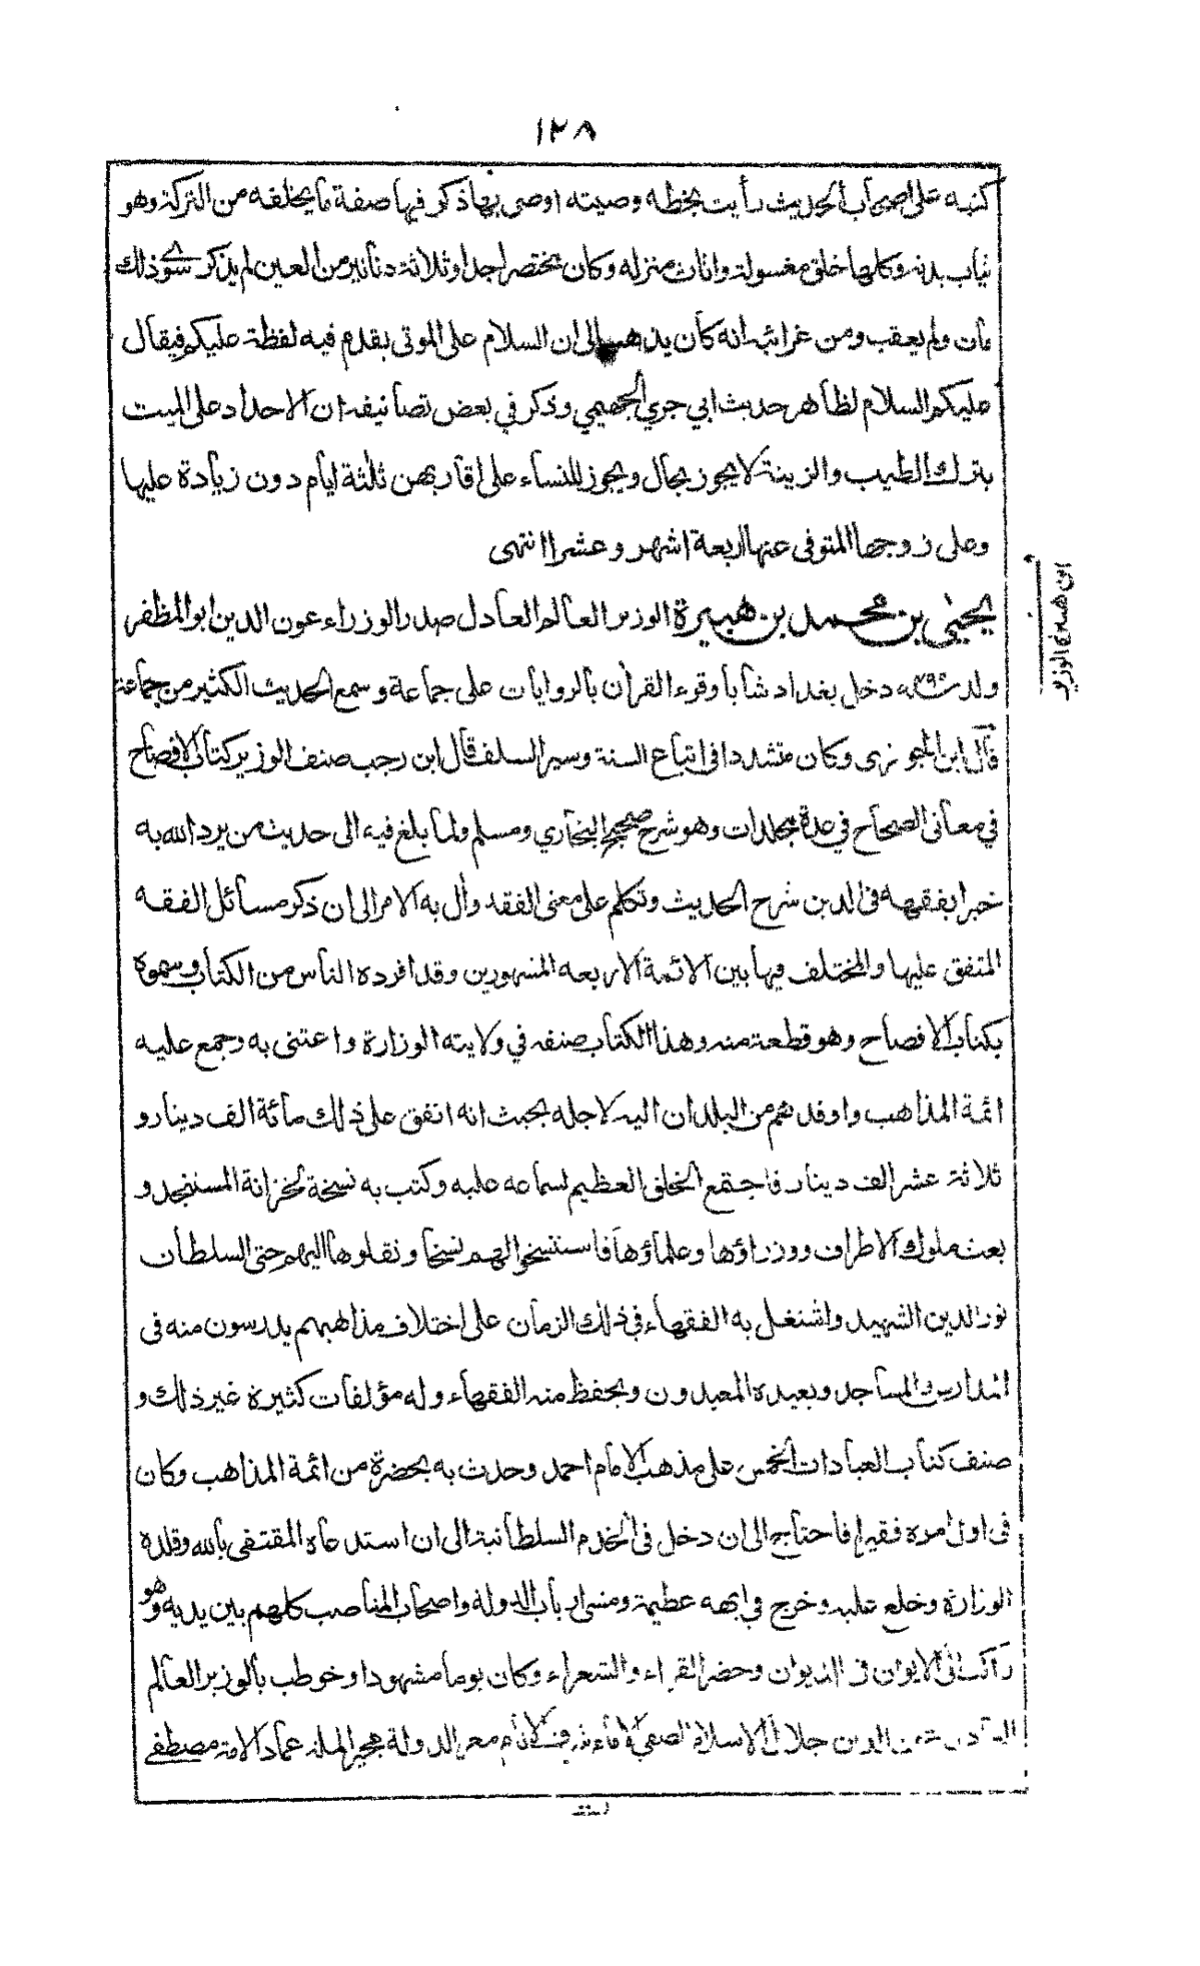 ١٢٨
كتبه على اصحاب الحديث رأيت بخطه وصيته اوصى بها ذكر فيها صفة ما يخلفه من التركة وهو
ثياب بدنه وكلها خلق مغسولة واثاث منزله وكان مختصرا جدا وثلاثة دنانير من العين لم يذكر سوى ذلك
مات ولم يعقب ومن غرائبه انه كان يذهب الى ان السلام على الموتى يقدم فيه لفظة عليكم فيقال
عليكم السلام لظاهر حديث ابي جري الهجيمي وذكر في بعض تصانيفه ان الاحداد على الميت
بترك الطيب والزينة لا يجوز بحال ويجوز للنساء على اقاربهن ثلثة ايام دون زيادة عليها
وعلى زوجها المتوفى عنها اربعة اشهر وعشرا انتهى
يحيى بن محمد بن هبيرة الوزير العالم العادل صدر الوزراء عون الدين ابو المظفر
ابن هبيرة الوزير
ولد سنه دخل بغداد شابا وقرء القرأن بالروايات على جماعة وسمع الحديث الكثير من جماعة
قال ابن الجوزى وكان متشددا فى اتباع السنة وسير السلف قال ابن رجب صنف الوزير كتاب الافصاح
في معانى الصحاح في عدة مجلدات وهو شرح صحيح البخاري ومسلم ولما بلغ فيه الى حديث من يرد الله به
خيرا يفقهه فى الدين شرح الحديث وتكلم على معنى الفقه وأل به الامر الى ان ذكر مسائل الفقه
المتفق عليها والمختلف فيها بين الائمة الاربعه المشهورين وقد افرده الناس من الكتاب وسموه
بكتاب الافصاح وهو قطعة منه وهذا الكتاب صنفه في ولايته الوزارة واعتنى به وجمع عليه
ائمة المذاهب واوفدهم من البلدان اليه لاجله بحيث انه انفق على ذلك مائة الف دينار و
ثلاثة عشر الف دينار فاجتمع الخلق العظيم لسماعه عليه وكتب به نسخة لخزانة المستنجد و
بعث ملوك الاطراف ووزراؤها وعلماؤها فاستنسخوا لهم نسخا ونقلوها اليهم حتى السلطان
نور الدين الشهيد واشتغل به الفقهاء في ذلك الزمان على اختلاف مذاهبهم يدرسون منه فى
المدارس والمساجد ويعيده المعيدون ويحفظ منه الفقهاء وله مؤلفات كثيرة غير ذلك و
صنف كتاب العبادات الخمس على مذهب الامام احمد وحدث به بحضرة من ائمة المذاهب وكان
فى اول امره فقيرا فاحتاج الى ان دخل فى الخدم السلطانية الى ان استدعاه المقتفى بالله وقلده
الوزارة وخلع عليه وخرج في ابهه عظيمة ومشى ارباب الدولة واصحاب المناصب كلهم بين يديه وهو
راكب الى الايوان فى الديوان وحضر القراء والشعراء وكان يوما مشهودا وخوطب بالوزير العالم
الدين جلال الاسلام صفي الامام شرف الانام معز الدولة مجير الملة عماد الامة مصطفى